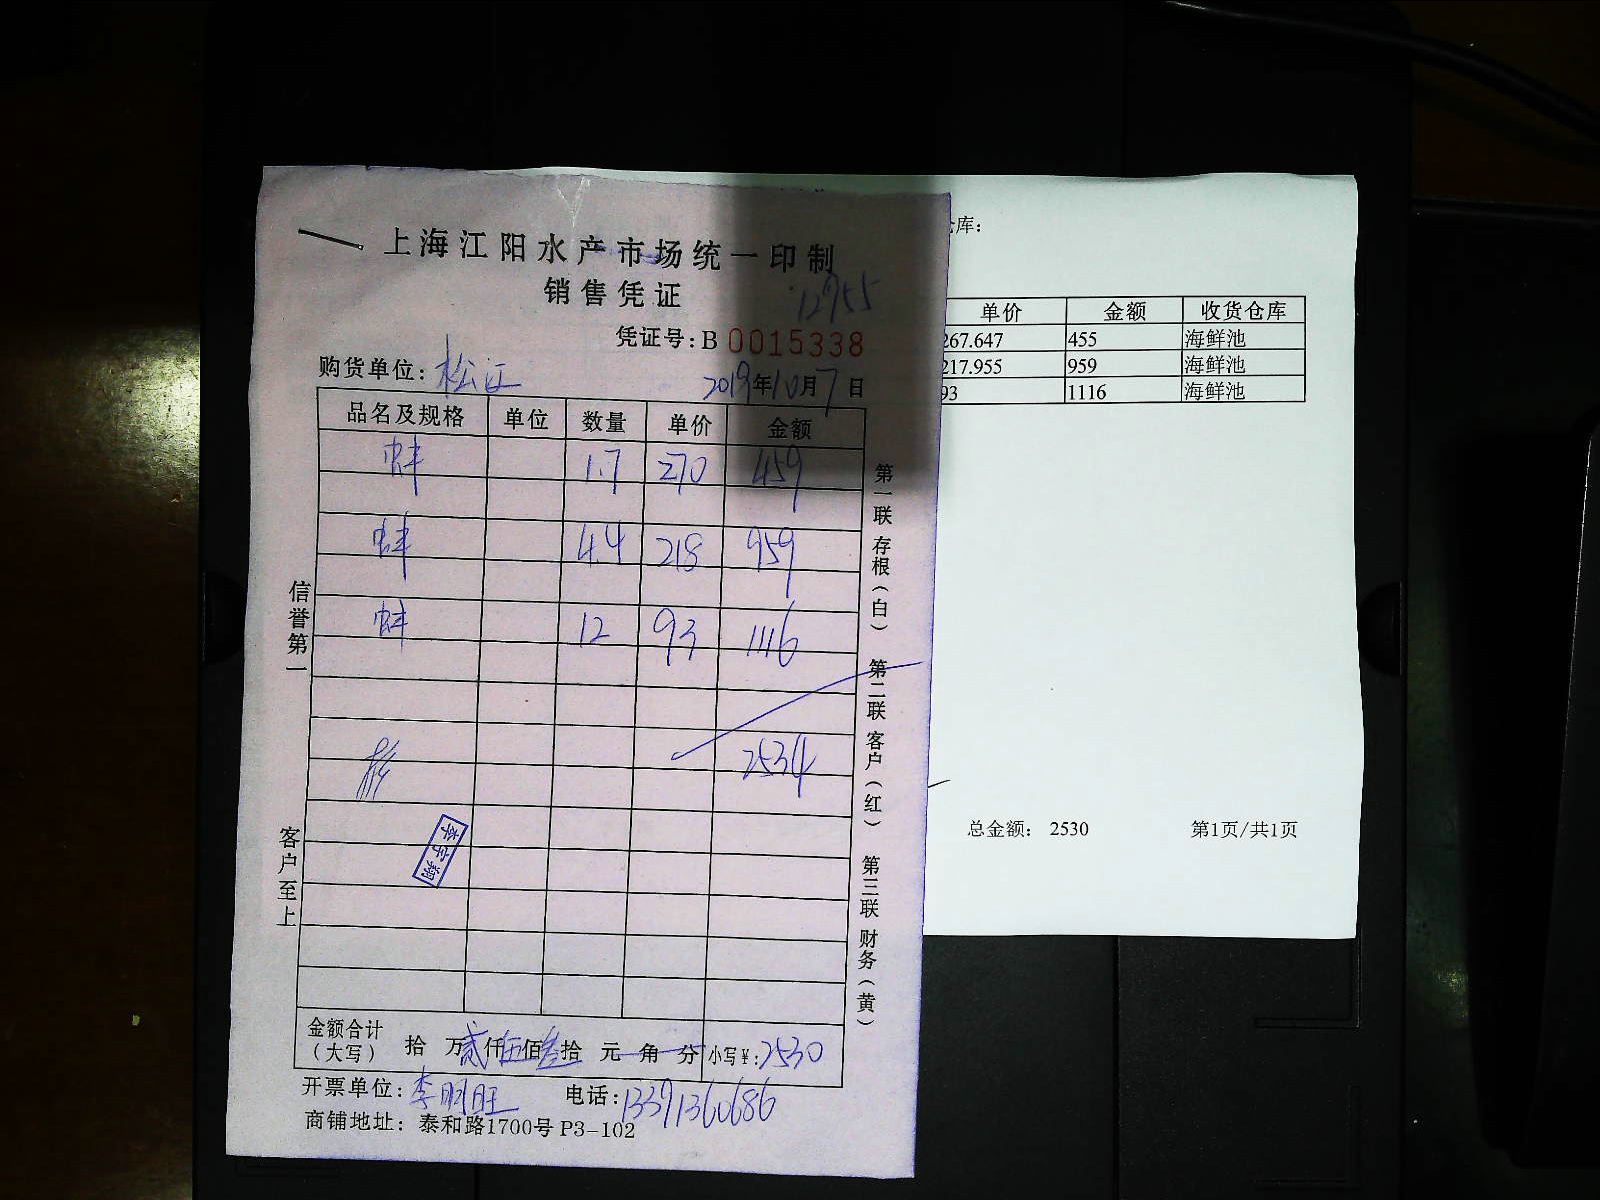 上海江阳水产市场统一印制
销售凭证
12955
凭证号:B 0015338
购货单位: 松江
2019年10月7日
品名及规格 单位 数量 单价 金额
蚌 1.7 270 459
蚌 4.4 218 959
蚌 12 93 1116
2534
李宇翔
金额合计
(大写) 拾 万贰仟伍佰叁拾 元 角 分 小写¥:2530
开票单位: 李明旺 电话:13391360686
商铺地址: 泰和路1700号 P3-102
信誉第一
客户至上
第一联 存根(白) 第二联 客户(红) 第三联 财务(黄)
仓库:
单价 金额 收货仓库
267.647 455 海鲜池
217.955 959 海鲜池
93 1116 海鲜池
总金额: 2530 第1页/共1页